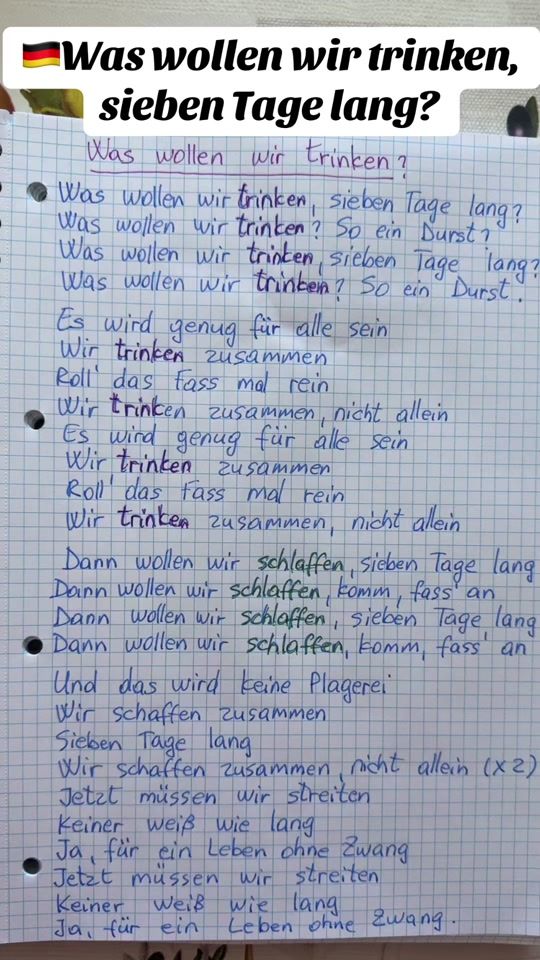 🇩🇪Was wollen wir trinken,
sieben Tage lang?
Was wollen wir trinken?
Was wollen wir trinken, sieben Tage lang?
Was wollen wir trinken? So ein Durst?
Was wollen wir trinken, sieben Tage lang?
Was wollen wir trinken? So ein Durst.
Es wird genug für alle sein
Wir trinken zusammen
Roll' das Fass mal rein
Wir trinken zusammen, nicht allein
Es wird genug für alle sein
Wir trinken zusammen
Roll' das Fass mal rein
Wir trinken zusammen, nicht allein
Dann wollen wir schlaffen, sieben Tage lang
Dann wollen wir schlaffen, komm, fass' an
Dann wollen wir schlaffen, sieben Tage lang
Dann wollen wir schlaffen, komm, fass' an
Und das wird keine Plagerei
Wir schaffen zusammen
Sieben Tage lang
Wir schaffen zusammen, nicht allein (x2)
Jetzt müssen wir streiten
Keiner weiß wie lang
Ja, für ein Leben ohne Zwang
Jetzt müssen wir streiten
Keiner weiß wie lang
Ja, für ein Leben ohne Zwang.